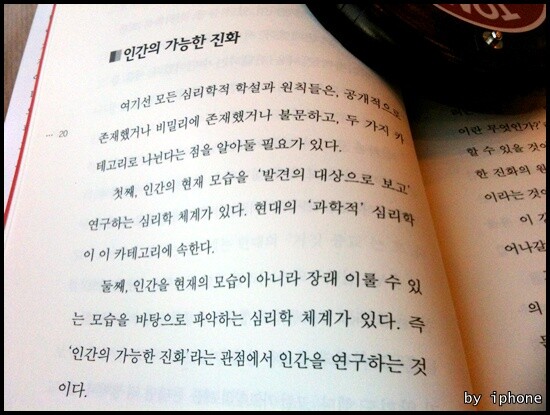 인간의 가능한 진화
여기선 모든 심리학적 학설과 원칙들은, 공개적으로
존재했거나 비밀리에 존재했거나 불문하고, 두 가지 카
테고리로 나뉜다는 점을 알아둘 필요가 있다.
… 20
첫째, 인간의 현재 모습을 ‘발견의 대상으로 보고’
연구하는 심리학 체계가 있다. 현대의 ‘과학적’ 심리학
이 이 카테고리에 속한다.
둘째, 인간을 현재의 모습이 아니라 장래 이룰 수 있
는 모습을 바탕으로 파악하는 심리학 체계가 있다. 즉
‘인간의 가능한 진화’라는 관점에서 인간을 연구하는 것
이다.
이란 무엇인가?’
할 수 있을 것이
한 진화의 원
이라는 것이
이
어나갈
의
by iphone